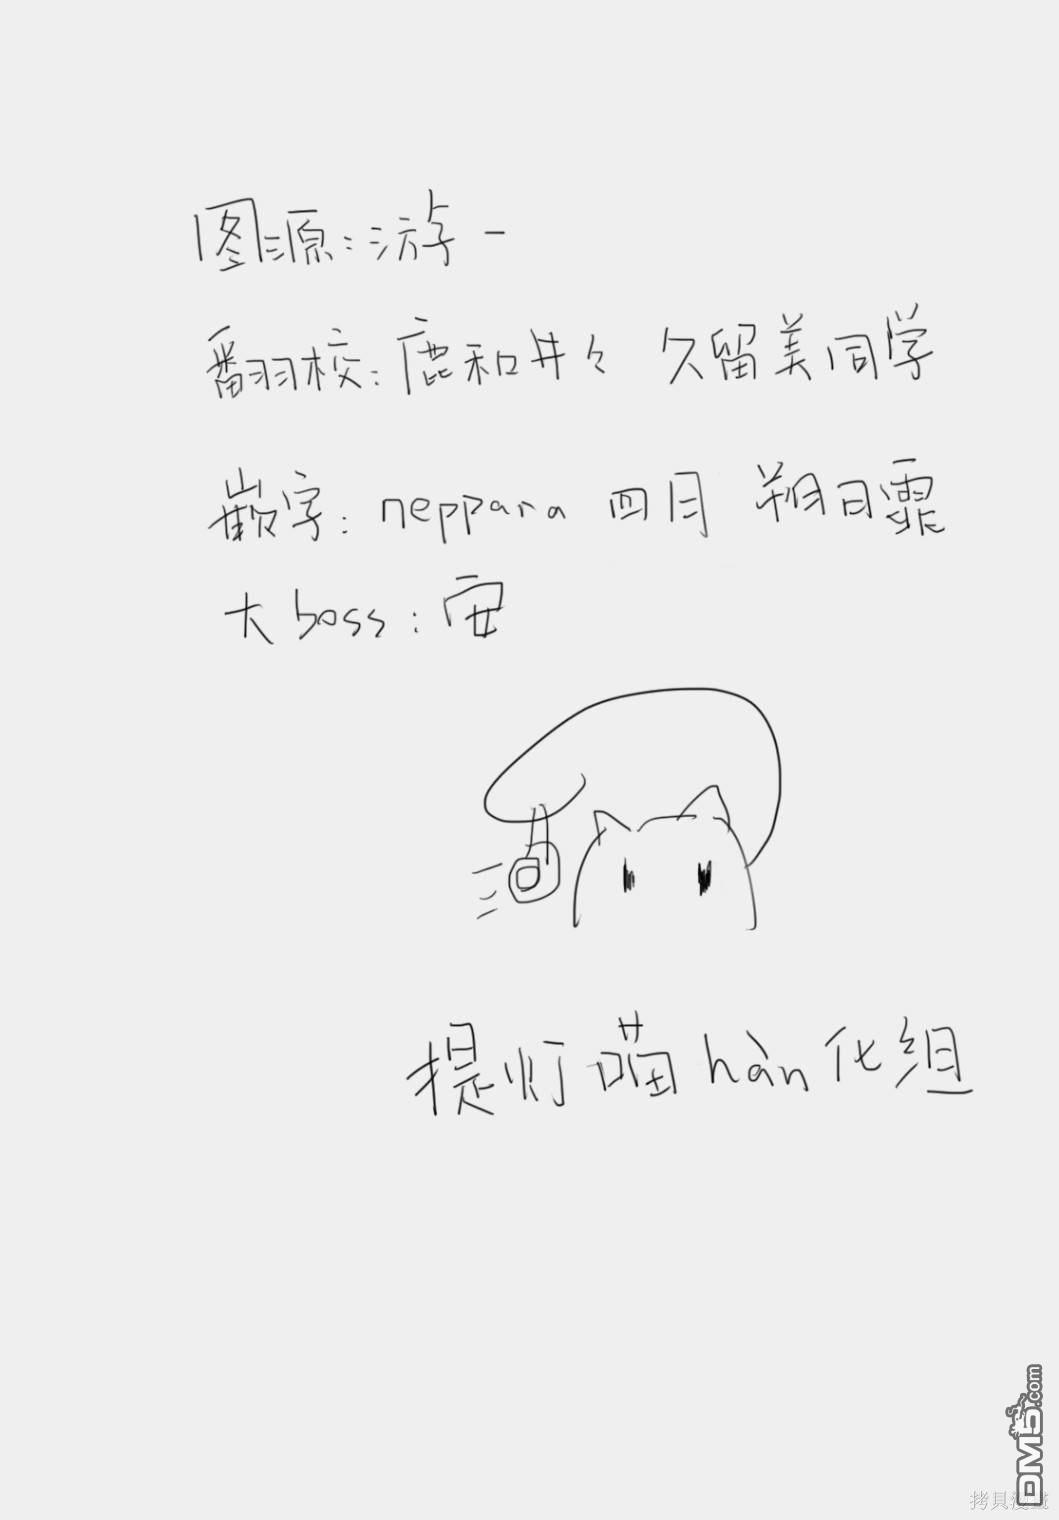 图源：游一
翻校：鹿和井々 久留美同学
嵌字：neppara 四月 朔日霏
大boss：安
提灯喵hàn化组
DM5.com
拷貝漫畫